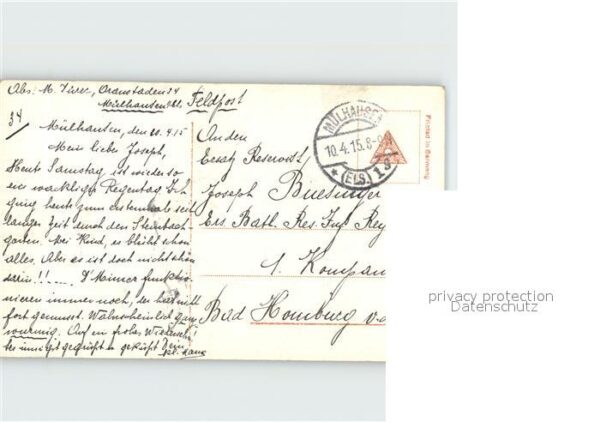 Abs: M. Oranstaden 34
Mülhausen Els. Feldpost
34/
Mülhausen, den 10.4.15
Mein lieber Joseph,
Heut Samstag, ist wieder so
ein wackliger Regentag. Ich
ging heute zum erstenmale seit
langer Zeit durch den Steinbach
garten. Mei Kind, es blüht schon
alles. Aber es ist doch nicht schön
darin!!.... D'Mimer funktio-
nieren immer noch, der hat nicht
fort gemusst. Wahrscheinlich
wurmig. Auf ein frohes Wiederseh'
innigst gegrüsst & geküsst Dein
kl. Hans
An den
Ersatz Reservist
Joseph Buesinger
Ers. Batl. Res. Inf. Reg
1. Kompan
Bad Homburg v.
MÜLHAUSEN
10.4.15.8-9
* (ELS.) 1 g
Printed in Germany
privacy protection
Datenschutz